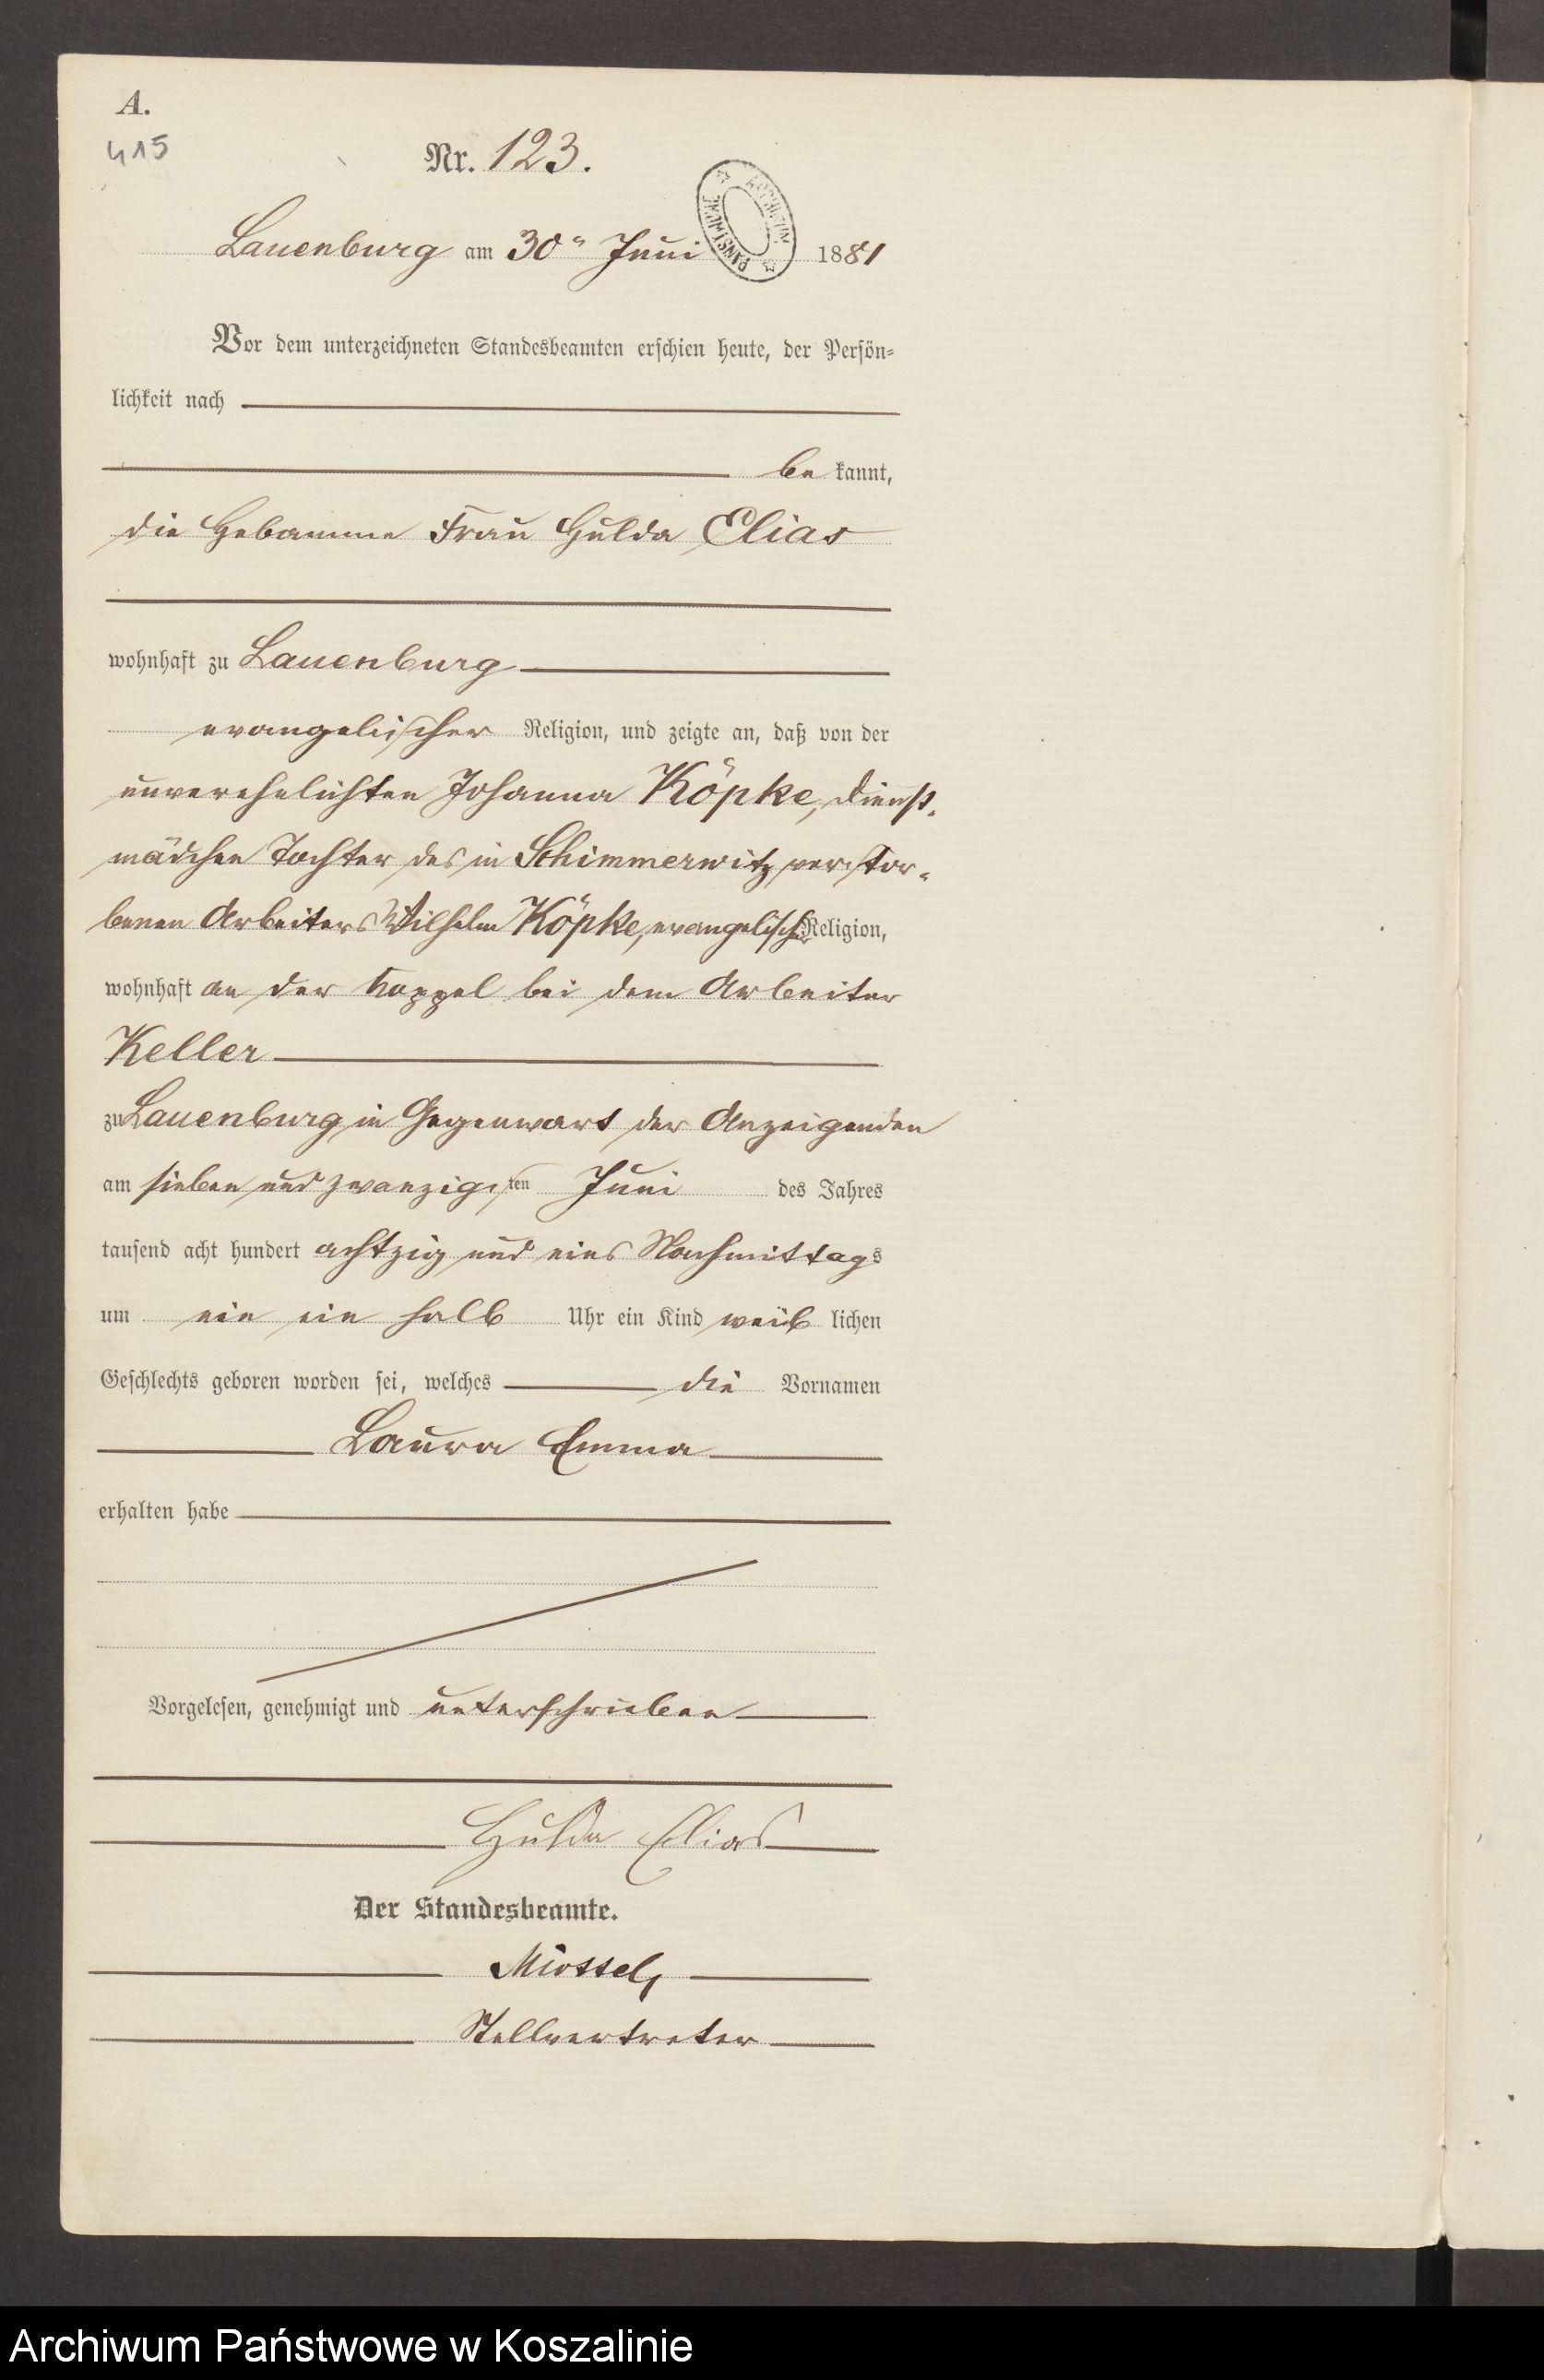 A.
415
Nr. 123.
ARCHIWUM PAŃSTWOWE
Lauenburg am 30n Juni 1881
Vor dem unterzeichneten Standesbeamten erschien heute, der Persön-
lichkeit nach
be kannt,
die Hebamme Frau Hulda Elias
wohnhaft zu Lauenburg
evangelischer Religion, und zeigte an, daß von der
unverehelichten Johanna Köpke, Dienst-
mädchen Tochter des in Schimmerwitz verstor-
benen Arbeiters Wilhelm Köpke, evangelischer Religion,
wohnhaft an der Koppel bei dem Arbeiter
Keller
zu Lauenburg, in Gegenwart der Anzeigenden
am sieben und zwanzigsten Juni des Jahres
tausend acht hundert achtzig und eins Nachmittags
um ein ein halb Uhr ein Kind weib lichen
Geschlechts geboren worden sei, welches die Vornamen
Laura Emma
erhalten habe
Vorgelesen, genehmigt und unterschrieben
Hulda Elias
Der Standesbeamte.
Stellvertreter
Archiwum Państwowe w Koszalinie